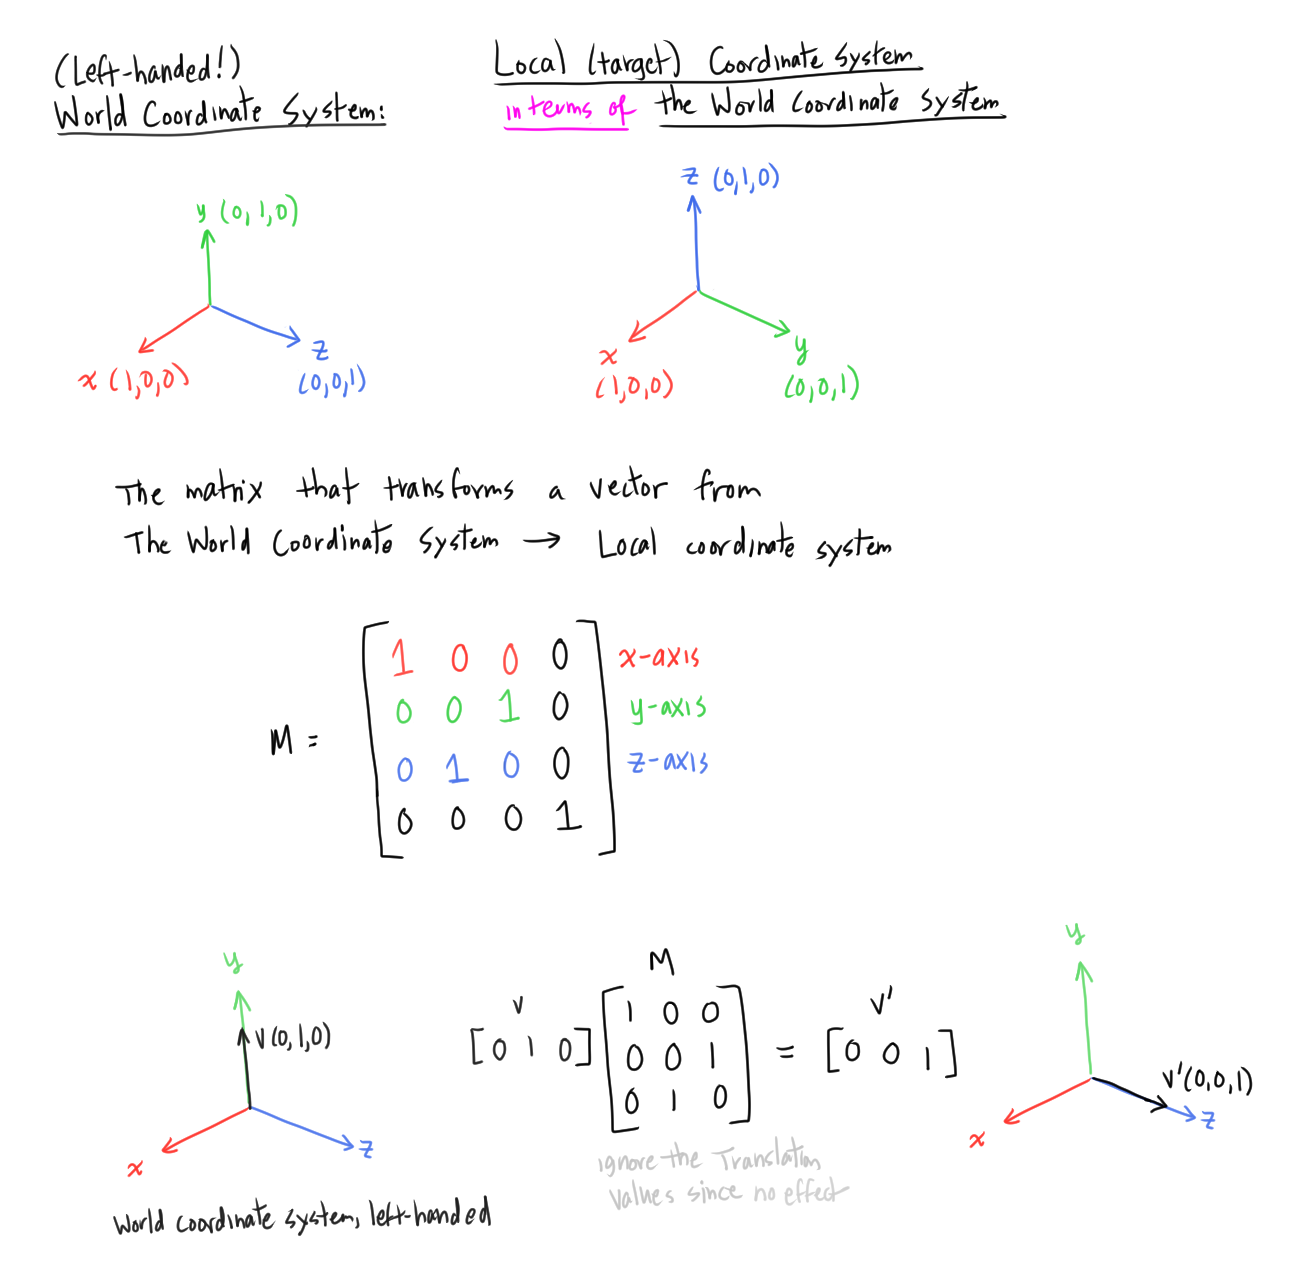 (Left-handed!)
World Coordinate System:
Local (target) Coordinate System
in terms of the World Coordinate System
y (0, 1, 0)
x (1,0,0)
z
(0,0,1)
z (0,1,0)
x
(1,0,0)
y
(0,0,1)
The matrix that transforms a vector from
The World Coordinate System → Local coordinate system
M =
1 0 0 0 x-axis
0 0 1 0 y-axis
0 1 0 0 z-axis
0 0 0 1
y
V(0,1,0)
x
z
World coordinate system, left-handed
V
[0 1 0]
M
1 0 0
0 0 1
0 1 0
=
V'
[0 0 1]
ignore the Translation
values since no effect
y
V'(0,0,1)
x
z